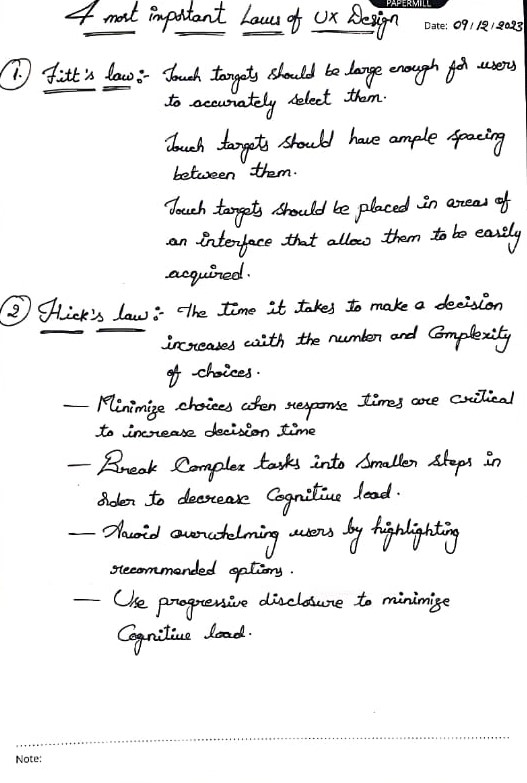 PAPERMILL
4 most important Laws of UX Design
Date: 09/12/2023
1. Fitt's law :- Touch targets should be large enough for users
to accurately select them.
Touch targets should have ample spacing
between them.
Touch targets should be placed in areas of
an interface that allow them to be easily
acquired.
2 Hick's law :- The time it takes to make a decision
increases with the number and Complexity
of choices.
— Minimize choices when response times are critical
to increase decision time
— Break Complex tasks into smaller steps in
order to decrease Cognitive load.
— Avoid overwhelming users by highlighting
recommended options.
— Use progressive disclosure to minimize
Cognitive load.
Note: